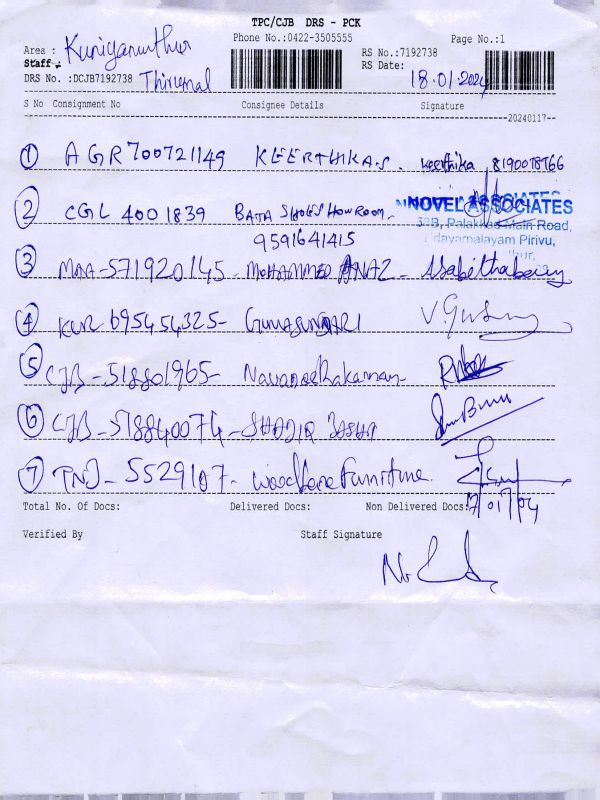 TPC/CJB DRS - PCK
Phone No.:0422-3505555
Page No.:1
Area : Kuniyamuthur
RS No.:7192738
Staff : Thirumal
RS Date: 18.01.2024
DRS No. :DCJB7192738
S No Consignment No Consignee Details Signature
20240117--
1 AGR700721149 KEERTHIKA.S. Keerthika 8190078766
2 CGL 4001839 BATA SHOE SHOWROOM
NOVEL ASSOCIATES
32B, Palakkad Main Road,
Pirivu,
9591641415
3 MAA-571920145- MOHAMMED ANAZ-
4 KUR 695454325- GUNASUNDARI
5 CJB-518801965-
6 CJB-518840074-
7 TNJ-5529107- Woodfore Furniture.
17/01/24
Total No. Of Docs: Delivered Docs: Non Delivered Docs:
Verified By Staff Signature